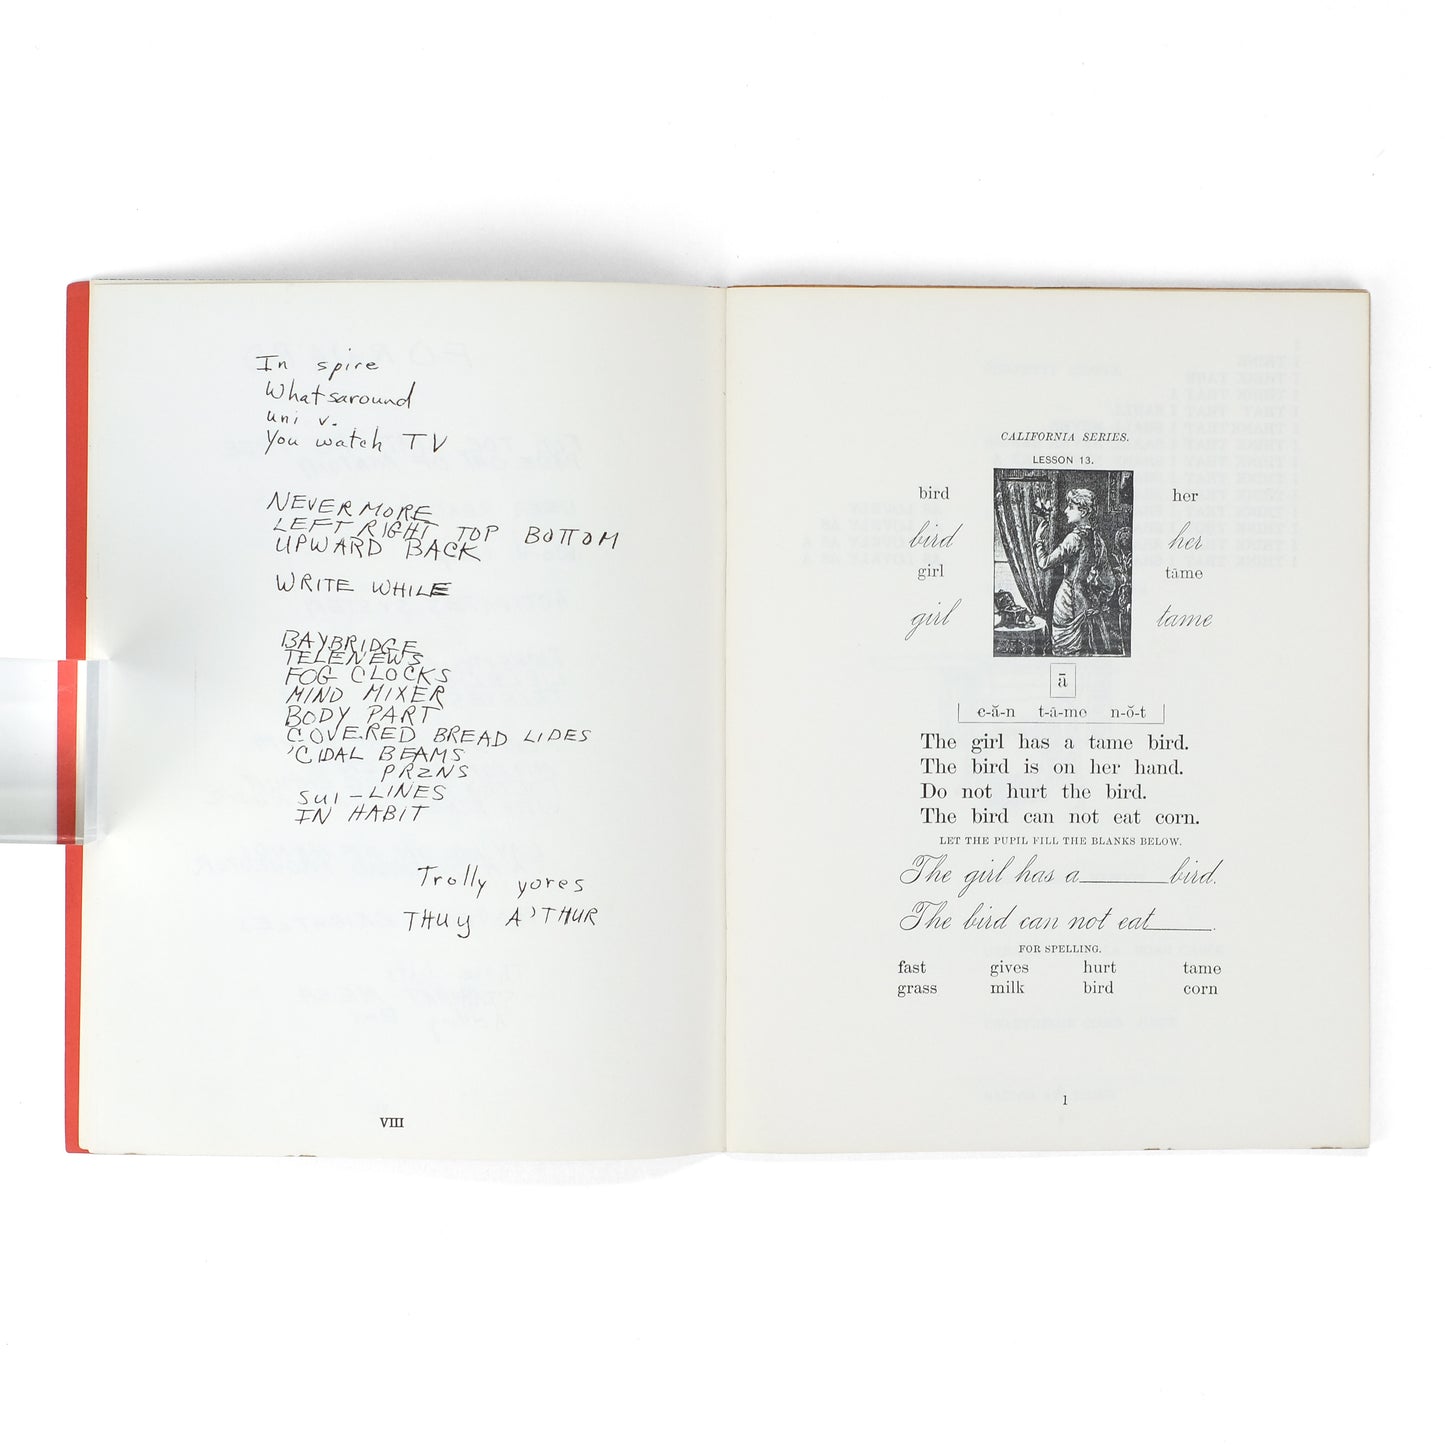 In spire
Whatsaround
uni v.
You watch TV
NEVERMORE
LEFT RIGHT TOP BOTTOM
UPWARD BACK
WRITE WHILE
BAYBRIDGE
TELENEWS
FOG CLOCKS
MIND MIXER
BODY PART
COVERED BREAD LIDES
'CIDAL BEAMS
PRZNS
SUI-LINES
IN HABIT
Trolly yores
THUY A'THUR
VIII
CALIFORNIA SERIES.
LESSON 13.
bird her
bird her
girl tāme
girl tame
ā
c-ă-n t-ā-me n-ŏ-t
The girl has a tame bird.
The bird is on her hand.
Do not hurt the bird.
The bird can not eat corn.
LET THE PUPIL FILL THE BLANKS BELOW.
The girl has a ______ bird.
The bird can not eat ______.
FOR SPELLING.
fast gives hurt tame
grass milk bird corn
1